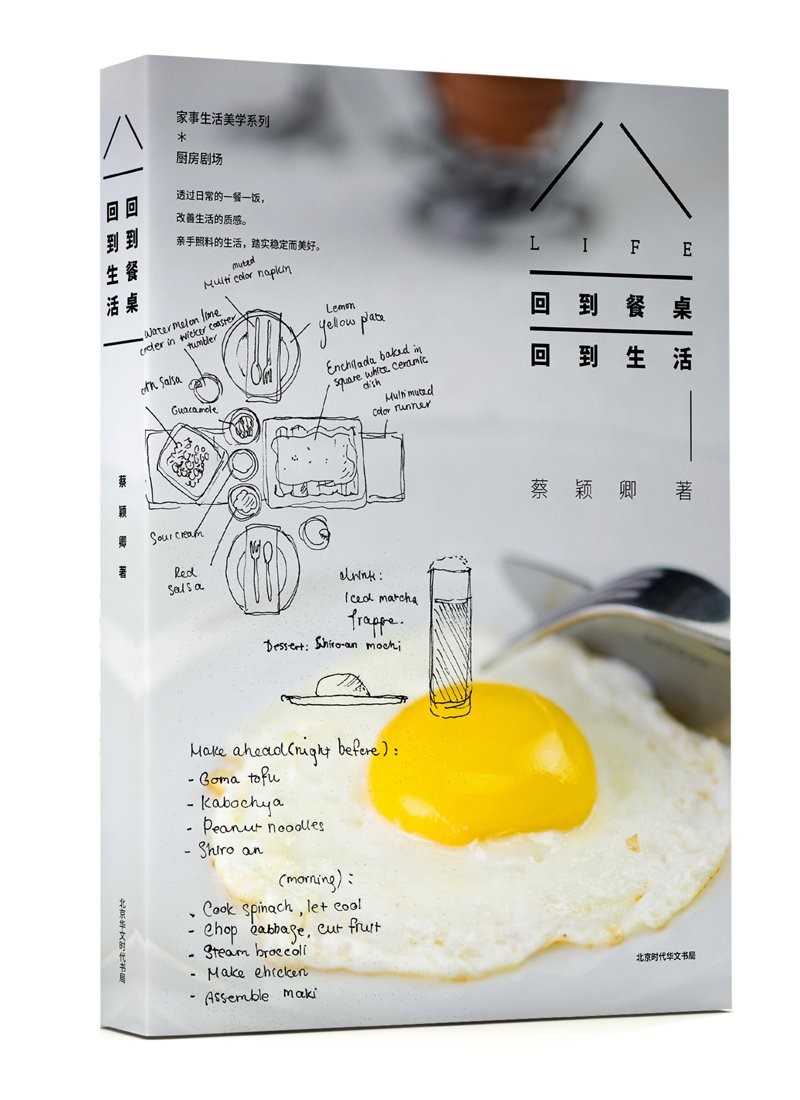 回到餐桌
回到生活
蔡颖卿 著
北京华文时代书局
家事生活美学系列
*
厨房剧场
透过日常的一餐一饭，
改善生活的质感。
亲手照料的生活，踏实稳定而美好。
LIFE
回到餐桌
回到生活
蔡颖卿 著
muted
Multi color napkin
Watermelon lime
in wicker coaster
tumbler
Lemon
yellow plate
Enchilada baked in
square white ceramic
dish
Salsa
Guacamole
Multi muted
color runner
Sour cream
Red
Salsa
drink:
Iced matcha
frappe.
Dessert: Shiro-an mochi
Make ahead (night before):
- Goma tofu
- Kabochya
- Peanut noodles
- Shiro an
(morning):
- Cook spinach, let cool
- Chop cabbage, cut fruit
- Steam broccoli
- Make chicken
- Assemble maki
北京时代华文书局